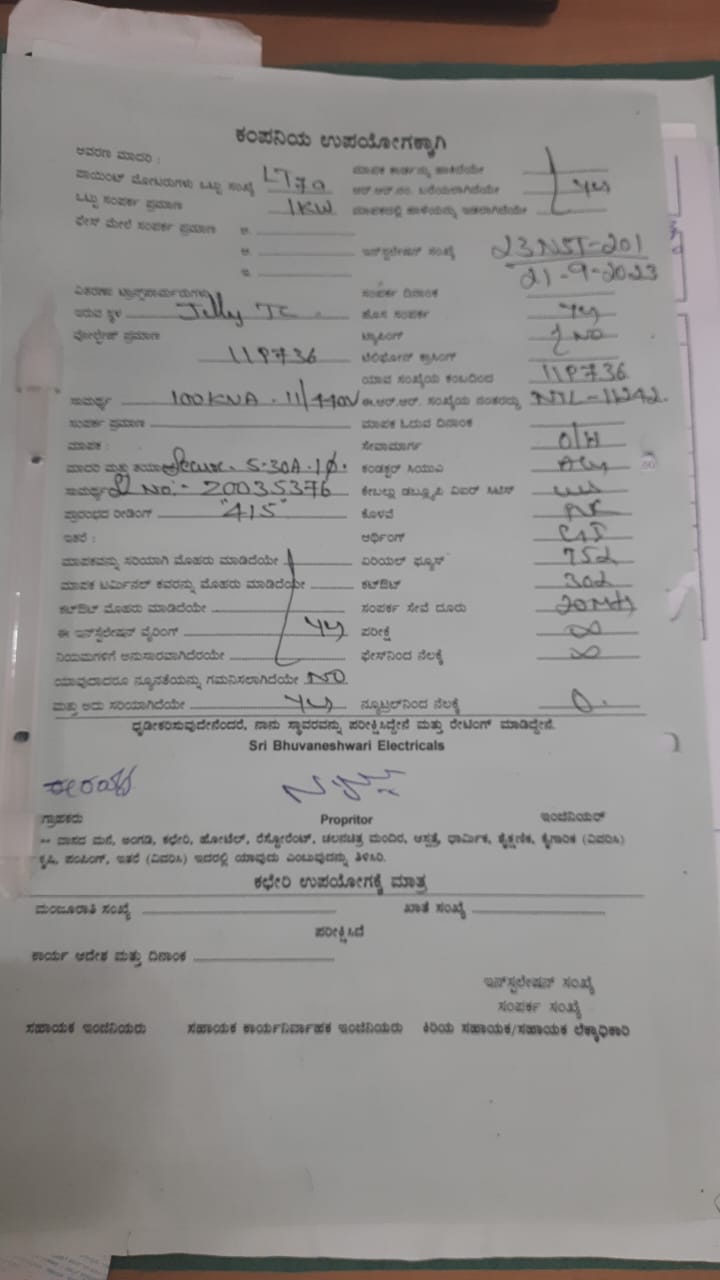 ಕಂಪನಿಯ ಉಪಯೋಗಕ್ಕಾಗಿ
ಆವರಣ ಮಾದರಿ :
ಪಾಯಿಂಟ್ ಮೋಟರುಗಳು ಒಟ್ಟು ಸಂಖ್ಯೆ LT70 ಮಾಪಕ ಕಾರ್ಡನ್ನು ಹಾಕಿದೆಯೇ
ಒಟ್ಟು ಸಂಪರ್ಕ ಪ್ರಮಾಣ 1KW ಆರ್.ಆರ್.ನಂ. ಬರೆಯಲಾಗಿದೆಯೇ Yes
ಫೇಸ್ ಮೇಲೆ ಸಂಪರ್ಕ ಪ್ರಮಾಣ ಎ.
ಇನ್‌ಸ್ಟಲೇಷನ್ ಸಂಖ್ಯೆ 23NST-201
21-9-2023
ವಿತರಣಾ ಟ್ರಾನ್ಸ್‌ಫಾರ್ಮರುಗಳು ಸಂಪರ್ಕ ದಿನಾಂಕ
ಇರುವ ಸ್ಥಳ Jelly TC. ಹೊಸ ಸಂಪರ್ಕ Yes
ವೋಲ್ಟೇಜ್ ಪ್ರಮಾಣ ಟ್ಯಾಪಿಂಗ್ NO
11P736 ಟೆಲಿಫೋನ್ ಕ್ರಾಸಿಂಗ್
ಯಾವ ಸಂಖ್ಯೆಯ ಕಂಬದಿಂದ 11P736
ಸಾಮರ್ಥ್ಯ 100KVA. 11/440V ಈ.ಆರ್.ಆರ್. ಸಂಖ್ಯೆಯ ನಂತರದ್ದು NTL-11242.
ಸಂಪರ್ಕ ಪ್ರಮಾಣ ಮಾಪಕ ಓದುವ ದಿನಾಂಕ
ಮಾಪಕ : ಸೇವಾಮಾರ್ಗ O/H
ಮಾದರಿ ಮತ್ತು ತಯಾ Secure. 5-30A. 1ϕ. ಕಂಡಕ್ಟರ್ ಸಿಯುವಿ
ಸಾಮರ್ಥ್ಯ Sl No:- 20035376
ಪ್ರಾರಂಭದ ರೀಡಿಂಗ್ "415" ಕೊಳವೆ
ಇತರೆ : ಅರ್ಥಿಂಗ್
ಮಾಪಕವನ್ನು ಸರಿಯಾಗಿ ಮೊಹರು ಮಾಡಿದೆಯೇ ಏರಿಯಲ್ ಫ್ಯೂಸ್
ಮಾಪಕ ಟರ್ಮಿನಲ್ ಕವರನ್ನು ಮೊಹರು ಮಾಡಿದೆಯೇ ಕಟ್‌ಔಟ್
ಕಟ್‌ಔಟ್ ಮೊಹರು ಮಾಡಿದೆಯೇ ಸಂಪರ್ಕ ಸೇವೆ ದೂರು 20Mts
ಈ ಇನ್‌ಸ್ಟಲೇಷನ್ ವೈರಿಂಗ್ Yes ಪರೀಕ್ಷೆ ∞
ನಿಯಮಗಳಿಗೆ ಅನುಸಾರವಾಗಿದೆಯೇ ಫೇಸ್‌ನಿಂದ ನೆಲಕ್ಕೆ ∞
ಯಾವುದಾದರೂ ನ್ಯೂನತೆಯನ್ನು ಗಮನಿಸಲಾಗಿದೆಯೇ NO
ಮತ್ತು ಅದು ಸರಿಯಾಗಿದೆಯೇ Yes ನ್ಯೂಟ್ರಲ್‌ನಿಂದ ನೆಲಕ್ಕೆ 0.
ಧೃಡೀಕರಿಸುವುದೇನೆಂದರೆ, ನಾನು ಸ್ಥಾವರವನ್ನು ಪರೀಕ್ಷಿಸಿದ್ದೇನೆ ಮತ್ತು ರೇಟಿಂಗ್ ಮಾಡಿದ್ದೇನೆ.
Sri Bhuvaneshwari Electricals
ಗ್ರಾಹಕರು Propritor ಇಂಜಿನಿಯರ್
** ವಾಸದ ಮನೆ, ಅಂಗಡಿ, ಕಛೇರಿ, ಹೋಟೆಲ್, ರೆಸ್ಟೋರೆಂಟ್, ಚಲನಚಿತ್ರ ಮಂದಿರ, ಆಸ್ಪತ್ರೆ, ಧಾರ್ಮಿಕ, ಶೈಕ್ಷಣಿಕ, ಕೈಗಾರಿಕ (ವಿವರಿಸಿ)
ಕೃಷಿ, ಪಂಪಿಂಗ್, ಇತರೆ (ವಿವರಿಸಿ) ಇದರಲ್ಲಿ ಯಾವುದು ಎಂಬುವುದನ್ನು ತಿಳಿಸಿರಿ.
ಕಛೇರಿ ಉಪಯೋಗಕ್ಕೆ ಮಾತ್ರ
ಮಂಜೂರಾತಿ ಸಂಖ್ಯೆ ಖಾತೆ ಸಂಖ್ಯೆ
ಪರೀಕ್ಷಿಸಿದೆ
ಕಾರ್ಯ ಆದೇಶ ಮತ್ತು ದಿನಾಂಕ
ಇನ್‌ಸ್ಟಲೇಷನ್ ಸಂಖ್ಯೆ
ಸಂಪರ್ಕ ಸಂಖ್ಯೆ
ಸಹಾಯಕ ಇಂಜಿನಿಯರು ಸಹಾಯಕ ಕಾರ್ಯನಿರ್ವಾಹಕ ಇಂಜಿನಿಯರು ಕಿರಿಯ ಸಹಾಯಕ/ಸಹಾಯಕ ಲೆಕ್ಕಾಧಿಕಾರಿ